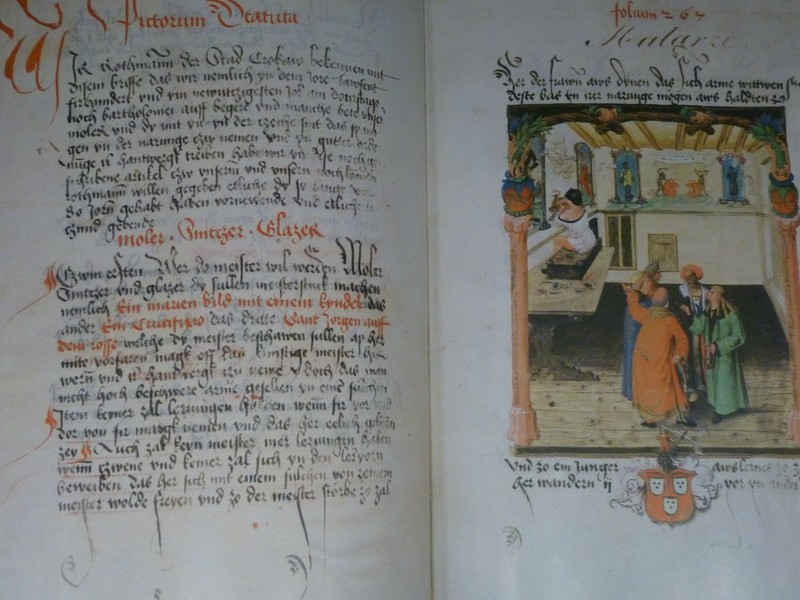 Pictorum Statuta
Wir Rothmann der Stad Crokaw bekennen mit
disem briffe das wir nemlich yn dem Jore tawsent
firhundert und yn newntzigesten Jor am donstage
noch bartholomei auff begere und manche bete unser
moler und dy mit yn yn der czeche sint das sy
gen yn der narunge czw nemen Und yn gutter orde
nu̅ge ir hantwergk treiben habe wir yn dese noch ge
schribene artikel czw unserm und unsern nochkomen
rothmann willen gegeben etliche dy sy lange vor
so Jorn gehabt haben vornewende und etliche
tzund gebende
Moler . Snitczer . Glazer
Czwm ersten Wer do meister wil werden Moler
Snitczer und glazer dy sullen meisterstuck machen
nemlich Ein marien bild mit einem kyndel das
ander Ein Crucifixio das dritte Sant Jorgen auff
dem rosse welche dy meister beschawen sullen ap her
mite vorfaren magk off das kunftige meister
wern und ir hantwergk czu newe Und doch das man
nicht hoch beschwere arme gesellen yn eine sulchen
Item keiner zal leriungen halden wenn fir Jor und
dor von fir margk nemen und das her eelich geborn
zey Auch zal keyn meister mer leriungen haben
wenn czwene und keiner zal sich yn den leryorn
beweiben Das her sich mit einem sulchen von zeinem
meister wolde freyen und zo der meister storbe zo zal
folium 267
Malarze
Her der frawn aws dynen das sich arme wittwen
deste bas yn irer narunge mogen aws halden
Und zo ein Junger aws lernet zo
her wandern ij vor yn ander